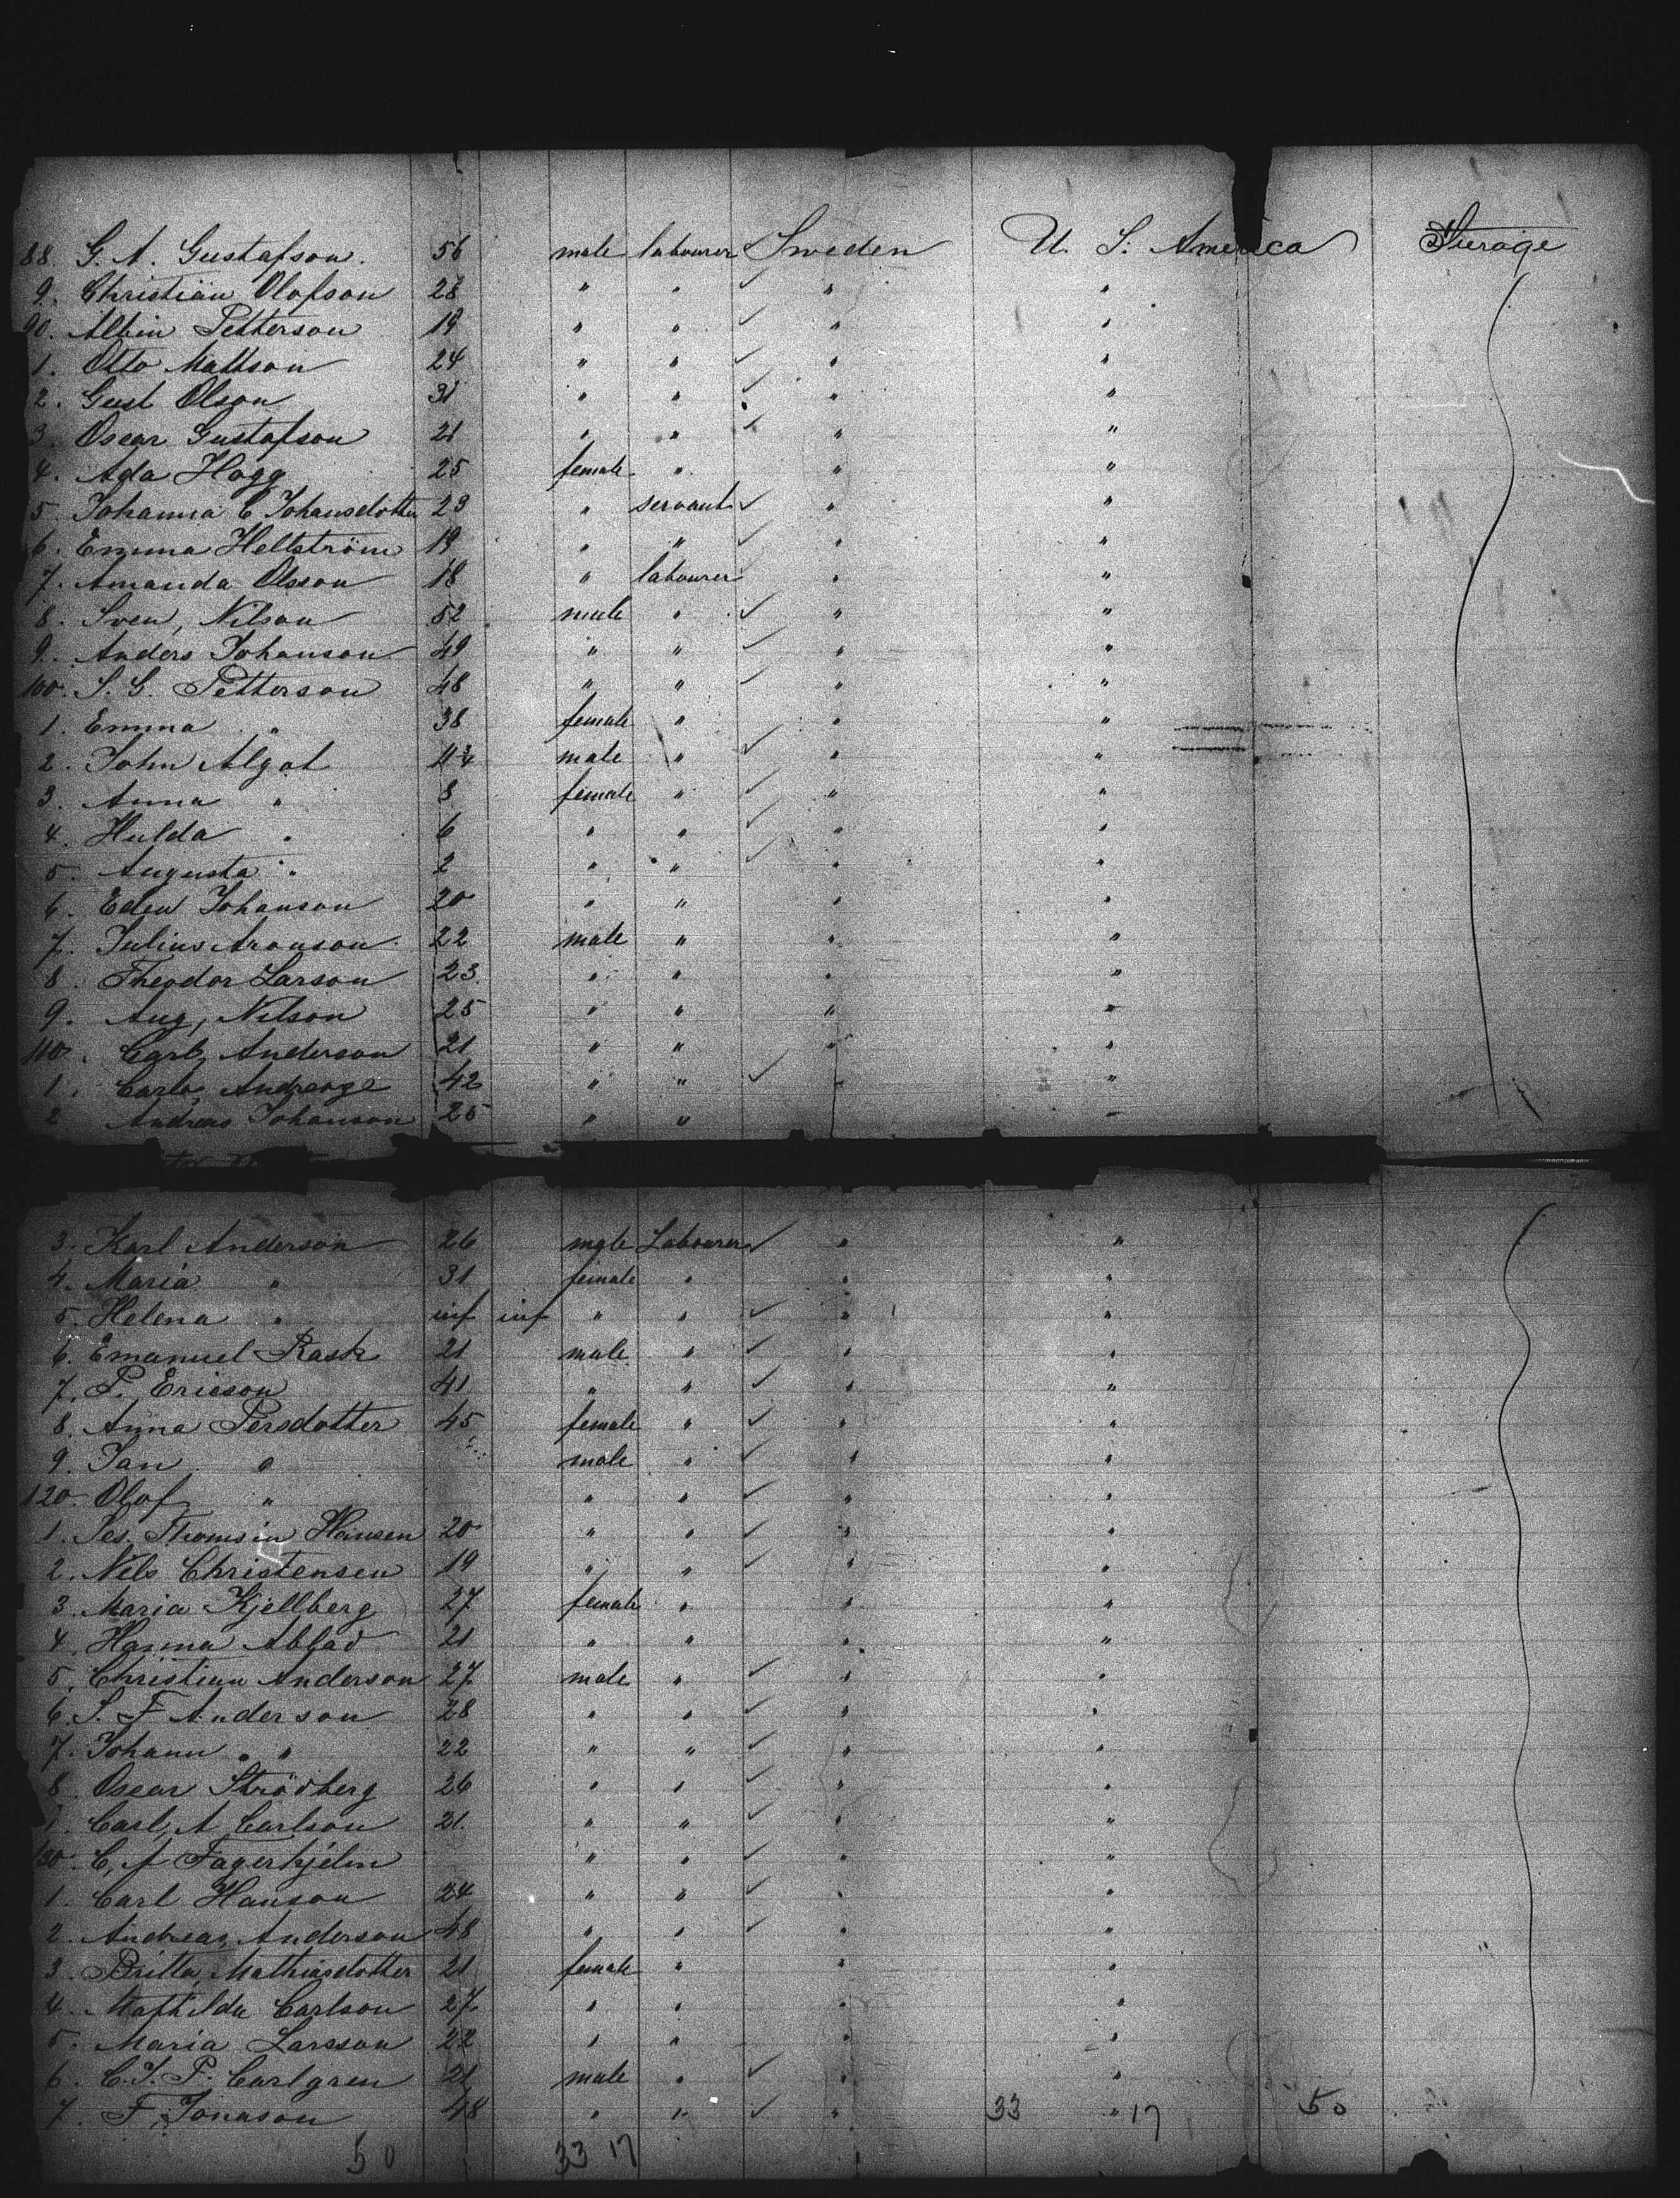 88. G. A. Gustafson. 56 male labourer Sweden U. S. America Sterage
9. Christian Olofson 28 " " " "
90. Albin Petterson 19 " " " "
1. Otto Mattson 24 " " " "
2. Gust Olson 31 " " " "
3. Oscar Gustafson 21 " " " "
4. Ada Hogg 25 female " " "
5. Johanna C Johansdotter 23 " servant " "
6. Emma Hellström 19 " " " "
7. Amanda Olsson 18 " labourer " "
8. Sven, Nilson 52 male " " "
9. Anders Johanson 49 " " " "
100. S. G. Petterson 48 " " " "
1. Emma " 38 female " " "
2. John Algot male " " "
3. Anna " 8 female " " "
4. Hulda " 6 " " " "
5. Augusta " 2 " " " "
6. Eden Johanson 20 " " " "
7. Julius Aronson 22 male " " "
8. Theodor Larson 23. " " " "
9. Aug, Nilson 25 " " " "
110. Carl, Anderson 21 " " " "
1. Carlo, 42 " " " "
2 Andreas Johanson 25 " "
3. Karl Anderson 26 male Labourer " "
4. Maria " 31 female " " "
5. Helena " inf inf " " " "
6. Emanuel Rask 21 male " " "
7. P. Ericson 41 " " " "
8. Anna Persdotter 45 female " " "
9. Jan " male " " "
120. Olof " " " " "
1. Jes. Thomsin Hansen 20 " " " "
2. Nels Christensen 19 " " " "
3. Maria Kjellberg 27 female " " "
4. Hanna Ablad 21 " " " "
5. Christian Anderson 27 male " " "
6. S. F Anderson 28 " " " "
7. Johann " 22 " " " "
8. Oscar Strödberg 26 " " " "
Carl, A Carlson 21. " " " "
130. C, A Fagerhjelm " " " "
1. Carl Hanson 24 " " " "
2. Andreas, Anderson 48 " " " "
3. Britta, Mathiasdotter 21 female " " "
4. Mathilda Carlson 27 " " " "
5. Maria Larsson 22 " " " "
6. C. J. P. Carlgren 21 male " " "
7. F, Jonason 48 " " " 33 " 17 50
50 33 17